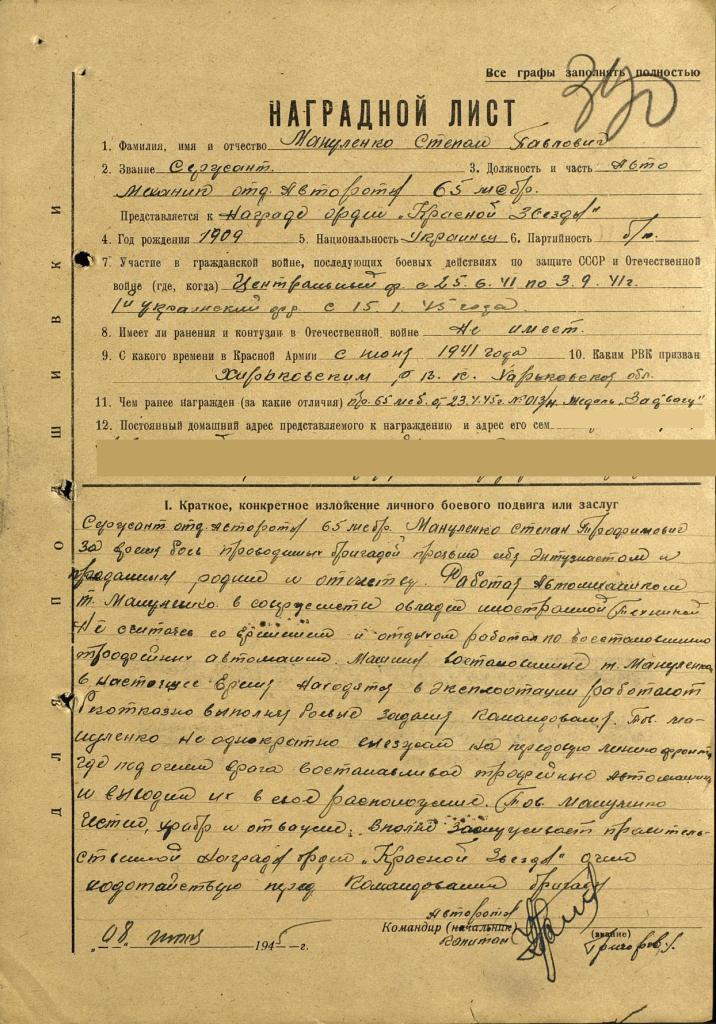 Все графы заполнять полностью
НАГРАДНОЙ ЛИСТ
1. Фамилия, имя и отчество Мануленко Степан Павлович
2. Звание Сержант. 3. Должность и часть Авто
Механик отд. Автороты 65 мсбр.
Представляется к Награде орден „Красной Звезды"
4. Год рождения 1909 5. Национальность Украинец 6. Партийность б/п.
7. Участие в гражданской войне, последующих боевых действиях по защите СССР и Отечественной
войне (где, когда) Центральный ф. с 25.6.41 по 3.9.41г.
1й украинский фр. с 15.1.45 года.
8. Имеет ли ранения и контузии в Отечественной войне Не имеет.
9. С какого времени в Красной Армии с июня 1941 года 10. Каким РВК призван
Харьковской обл.
11. Чем ранее награжден (за какие отличия) пр. 65 мсб. от 23.4.45г. № 013/н. Медаль „За отвагу"
12. Постоянный домашний адрес представляемого к награждению и адрес его сем
ДЛЯ ПОДШИВКИ
I. Краткое, конкретное изложение личного боевого подвига или заслуг
Сержант отд. Автороты 65 мсбр. Мануленко Степан Трофимович
За время проводимых бригадой
преданным родине и отечеству. Работая Автомехаником
т. Мануленко в совершенстве овладел иностранной Техникой
Не считаясь со временем и отдыхом работал по восстановлению
трофейных автомашин. Машины востановленные т. Мануленко
в настоящее Время Находятся в эксплоатации работают
безотказно выполняя боевые задания Командования. Тов. Ма-
нуленко не однократно выезжал на передовую линию фронта
где под огнем врага востанавливал трофейные Автомашины
и выводил их в свое расположение. Тов. Мануленко
Честен, храбр и отважен, вполне заслуживает правитель-
ственной Награды орден „Красной Звезды" о чем
ходотайствую перед Командованием бригады
Автороты
Командир (начальник)
Капитан
(звание)
Григоров
„08" 1945 г.